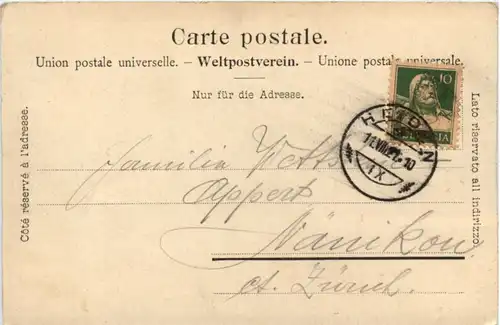 Carte postale.
Union postale universelle. – Weltpostverein. – Unione postale universale.
Nur für die Adresse.
Côté réservé à l'adresse.
Lato riservato all indirizzo.
10
HELVETIA
IX
Familie
Appert
Nänikon
ct. Zürich.